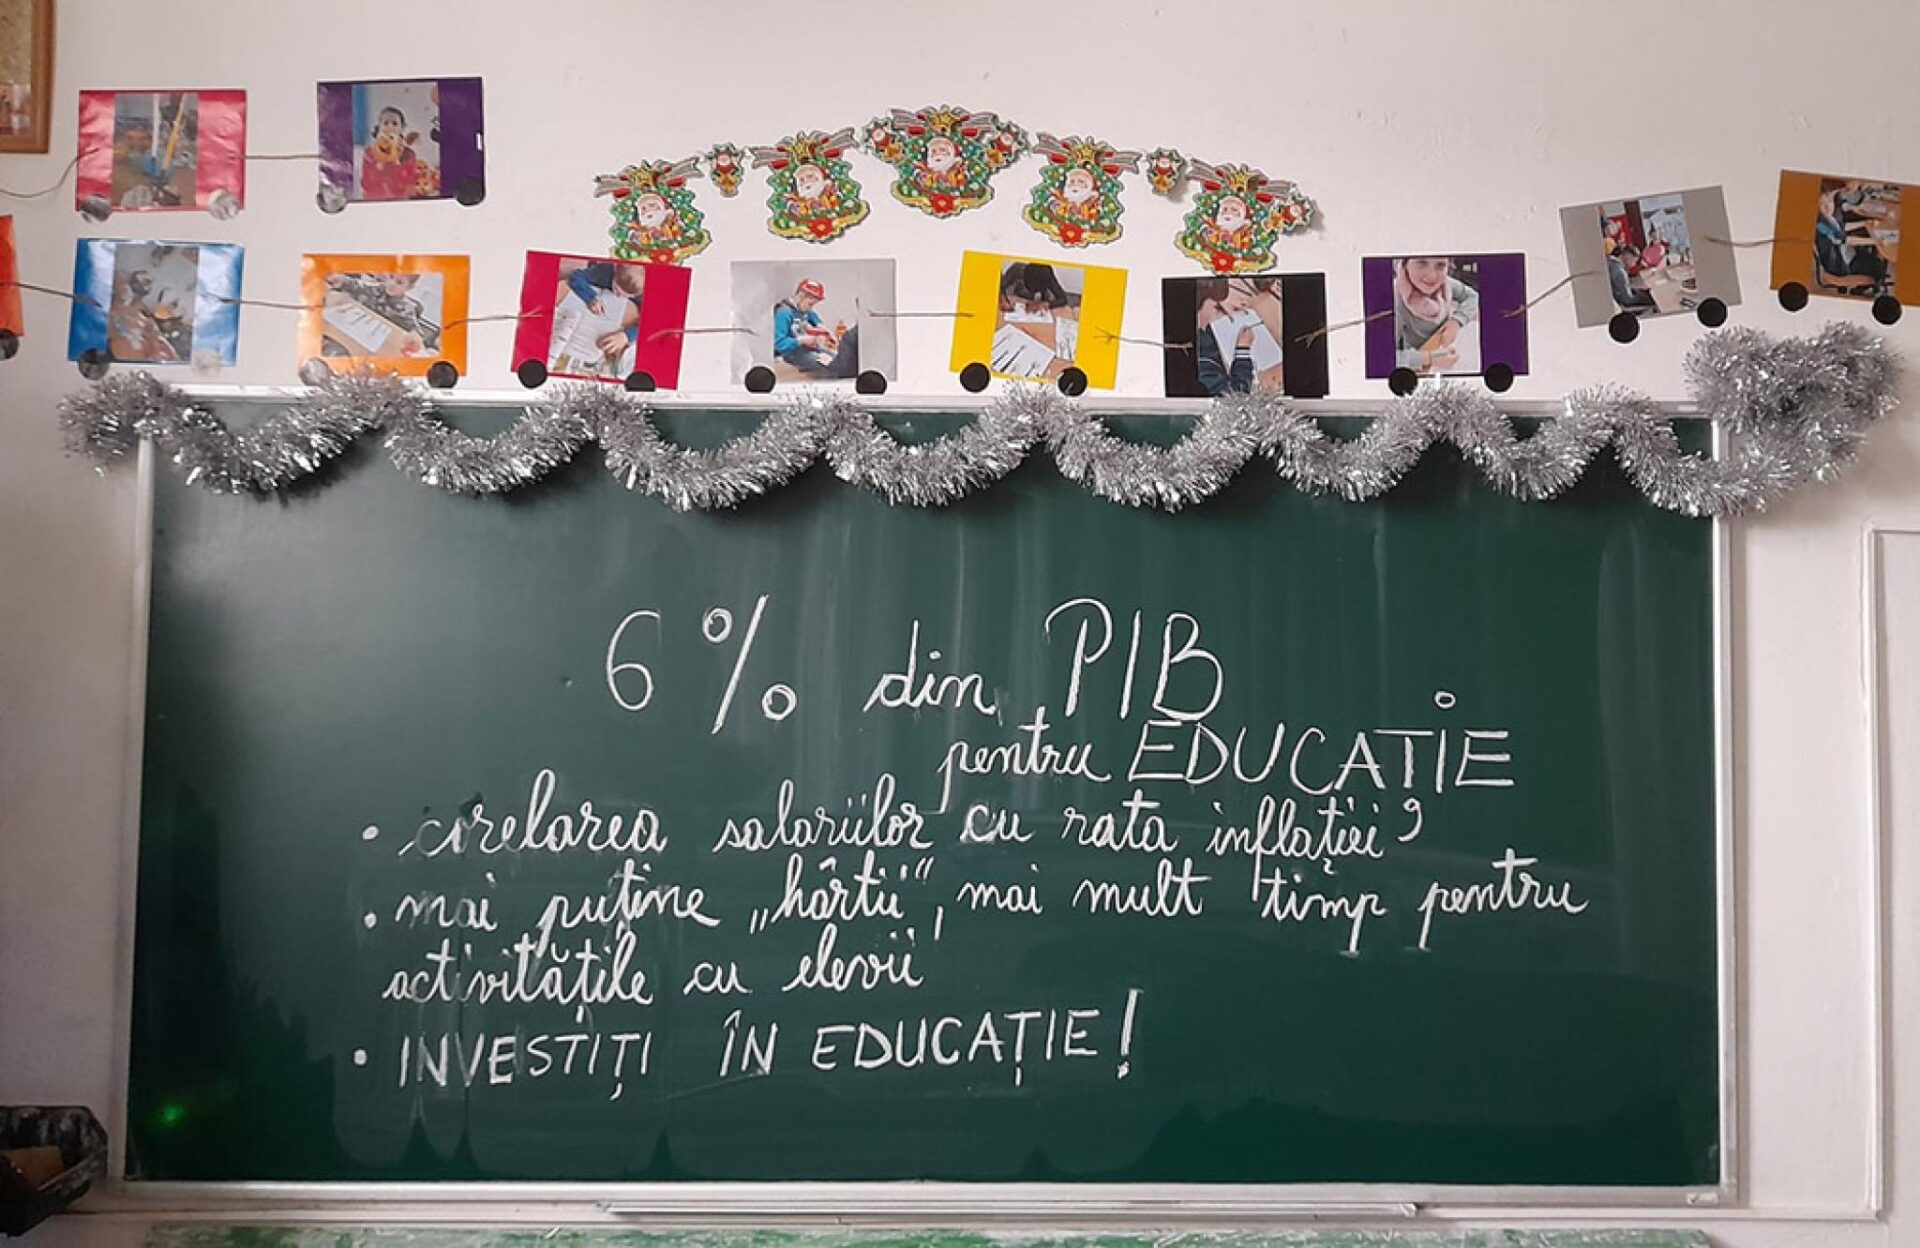 6% din PIB
pentru EDUCAȚIE
• corelarea salariilor cu rata inflației?
• mai puține „hârtii", mai mult timp pentru
activitățile cu elevii
• INVESTIȚI ÎN EDUCAȚIE!